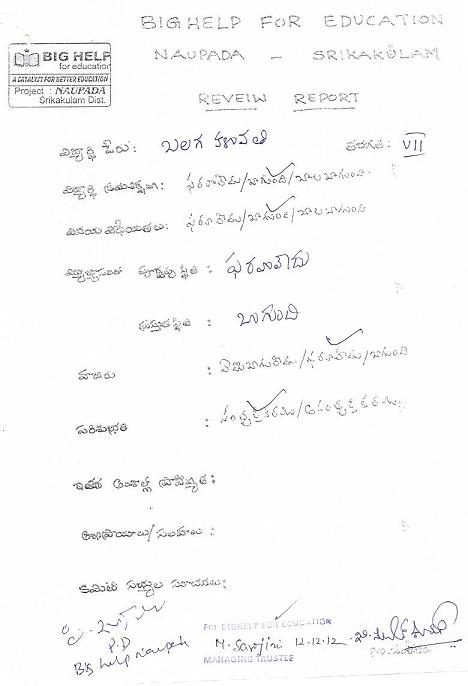 BIG HELP FOR EDUCATION
NAUPADA - SRIKAKULAM
BIG HELP
for education
A CATALYST FOR BETTER EDUCATION
Project : NAUPADA
Srikakulam Dist.
REVEIW REPORT
విద్యార్థి పేరు: బలగ కళావతి తరగతి: VII
విద్యార్థి క్రమశిక్షణ: ఫరవాలేదు/బాగుంది/చాలబాగుంది
వినయ విధేయతలు: ఫరవాలేదు/బాగుంది/చాలబాగుంది
పూర్వపు స్థితి : ఫరవాలేదు
ప్రస్తుత స్థితి : బాగుంది
హాజరు : ఫరవాలేదు/బాగుంది
పరిశుభ్రత : సంతృప్తికరము/అసంతృప్తికరము
ఇతర ప్రావీణ్యత :
అభిప్రాయాలు/సలహాలు :
కమిటీ సభ్యుల సూచనలు:
P.D
Big help Naupada
For BIGHELP FOR EDUCATION
M. Sarojini 12-12-12
MANAGING TRUSTEE